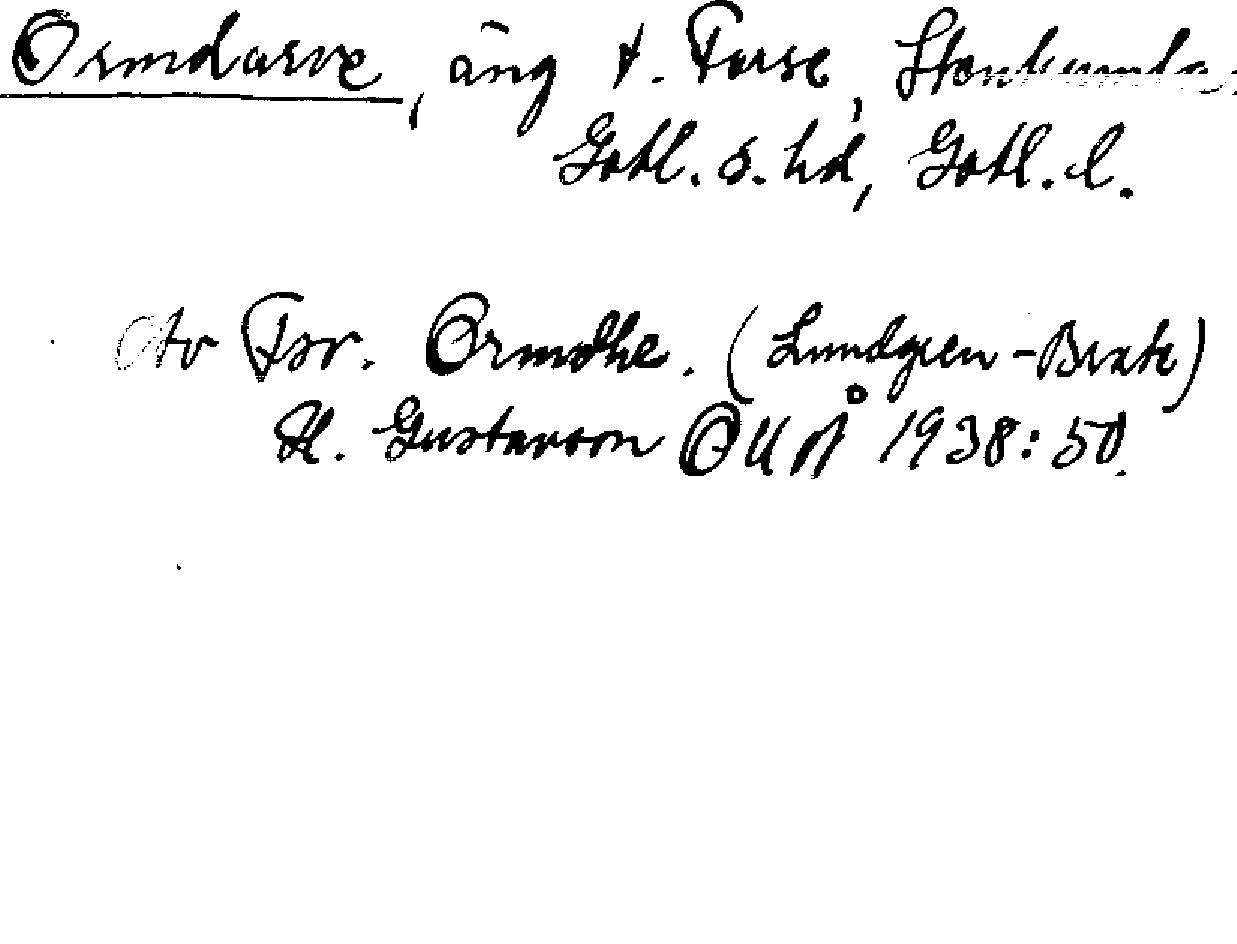 Ormdarve, äng t. Forse, Stenkumla,
Gotl. s. hd, Gotl. l.
Av Fsv. Ormdhe. (Lundgren-Brate)
H. Gustavson OUÅ 1938:50.